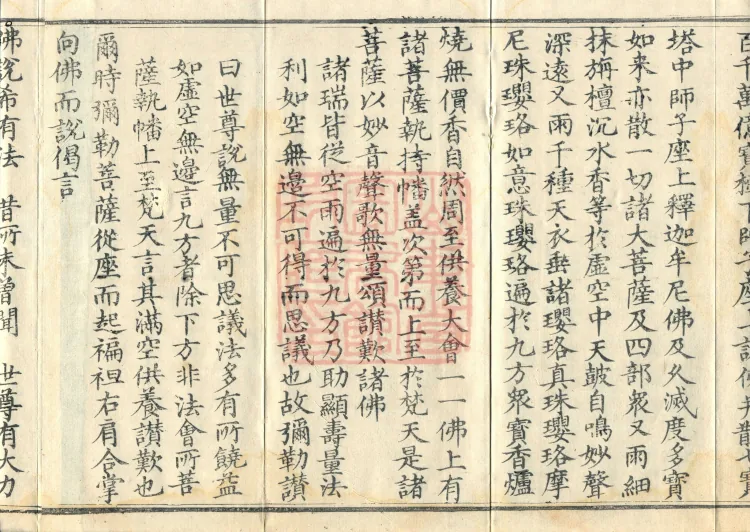 百千萬億寶 師子座 諸佛并散七寶
塔中師子座上釋迦牟尼佛及久滅度多寶
如来亦散一切諸大菩薩及四部衆又雨細
抹旃檀沉水香等於虛空中天皷自鳴妙聲
深遠又雨千種天衣垂諸瓔珞真珠瓔珞摩
尼珠瓔珞如意珠瓔珞遍於九方衆寶香爐
燒無價香自然周至供養大會一一佛上有
諸菩薩執持幡盖次第而上至於梵天是諸
菩薩以妙音聲歌無量頌讃歎諸佛
諸瑞皆從空雨遍於九方乃助顯壽量法
利如空無邊不可得而思議也故彌勒讃
曰世尊說無量不可思議法多有所饒益
如虛空無邊言九方者除下方非法會所菩
薩執幡上至梵天言其滿空供養讃歎也
爾時彌勒菩薩從座而起褊袒右肩合掌
向佛而說偈言
佛說希有法 昔所未曾聞 世尊有大力